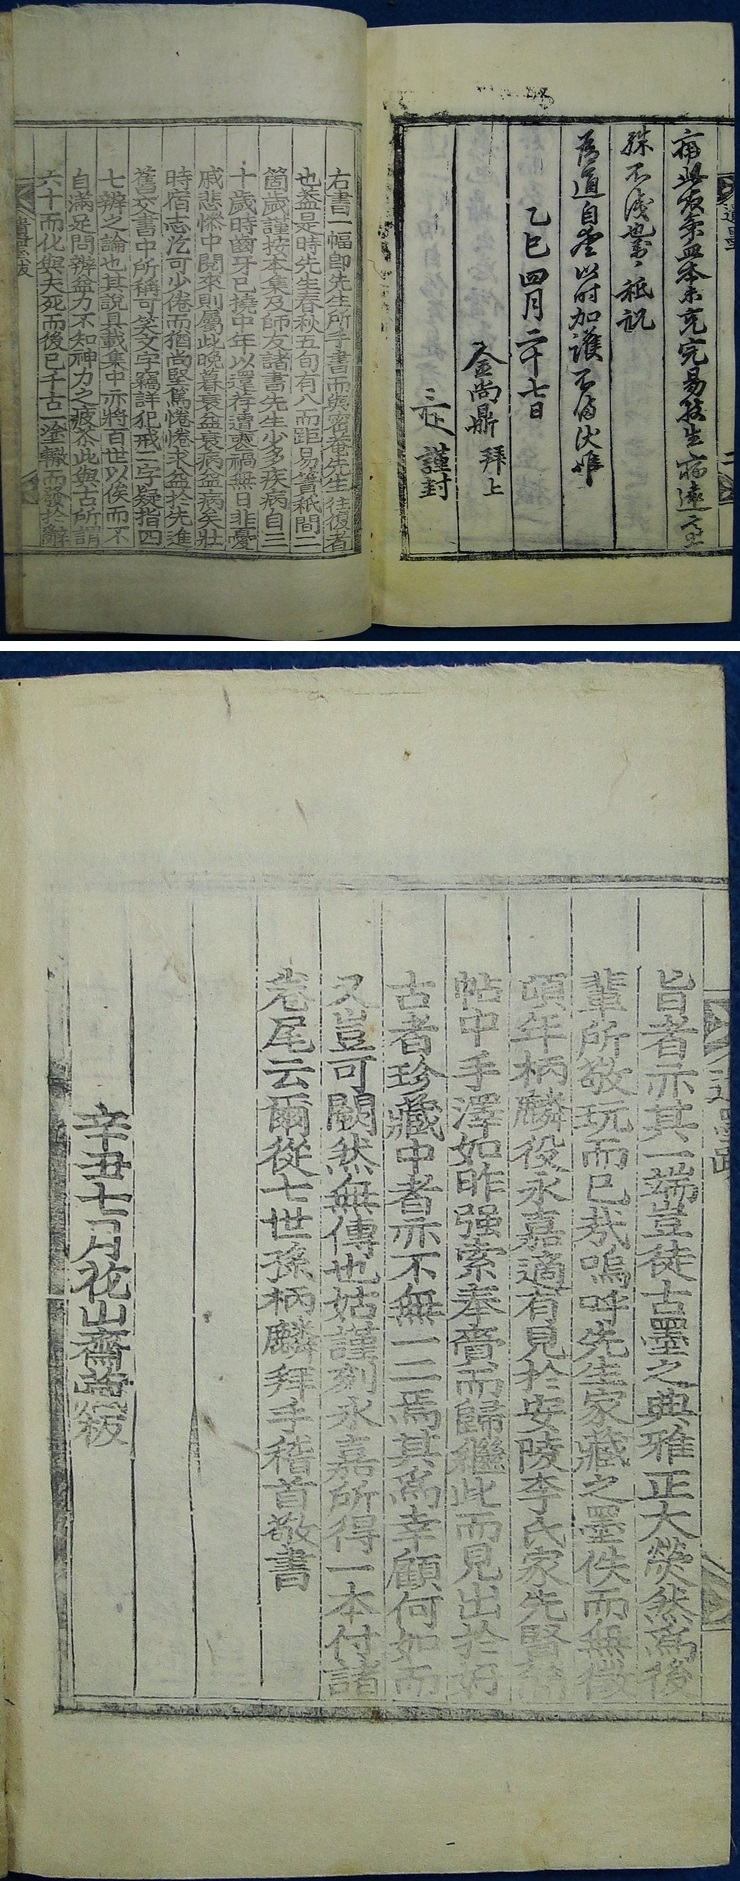 遺墨
殊不淺也 祗祝
爲道自 以時加護 不備 伏惟
乙巳四月二十七日
金尙鼎 拜上
謹封
右書一幅卽先生所手書而與 齋菴先生往復者
也盖是時先生春秋五旬有八而距易簀秪間二
箇歲謹按本集及師友諸書先生少多疾病自三
十歲時齒牙已 中年以 禍無日非憂
戚悲慘中間來則屬此晩暮衰益衰病益病矣壯
時宿志 可少倦而猶尙堅篤惓惓求益於先進
舊交書中所稱可笑文字竊詳犯戒二字疑指四
七辨之論也其說具載集中亦將百世以俟而不
自滿足問辨 力不知神力之疲 此與古所謂
六十而化與夫死而後已千古一塗轍而發於辭
遺墨跋
旨者亦其一端豈徒古墨之典雅正大煥然爲後
輩所敬玩而已哉嗚呼先生家藏之墨佚而無徵
頃年柄麟役永嘉適有見於安陵李氏家先賢
帖中手澤如昨强索奉賷而歸繼此而見出於
古者珍藏中者亦不無一二焉其爲幸顧何如而
又豈可闕然無傳也姑謹刻永嘉所得一本付諸
卷尾云爾從七世孫柄麟拜手稽首敬書
辛丑七月花山齋 跋